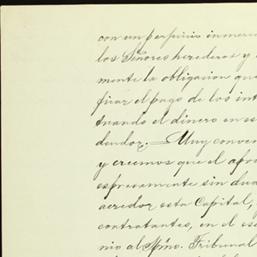 con un perjuicio inmen
los Señores herederos y
mente la obligacion que
ficar el pago de los int
cuando el dinero en se
deudor. Muy conven
y creemos que el afro
espresamente sin dua
acredor, esta Capital,
contratantes, en el ese
nio al Spmo. Tribunal